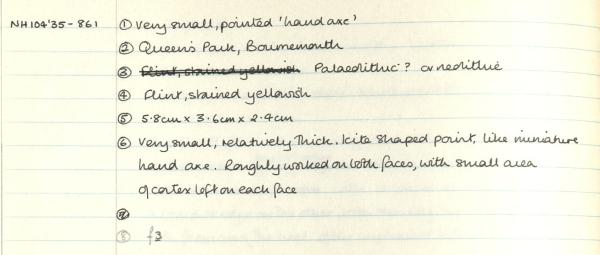 NH104'35-861 ① Very small, pointed 'hand axe'
② Queen's Park, Bournemouth
③ Flint, stained yellowish Palaeolithic? or neolithic
④ Flint, stained yellowish
⑤ 5.8cm x 3.6cm x 2.4cm
⑥ Very small, relatively thick. Kite shaped point, like miniature
hand axe. Roughly worked on both faces, with small area
of cortex left on each face
⑦
⑧ f3